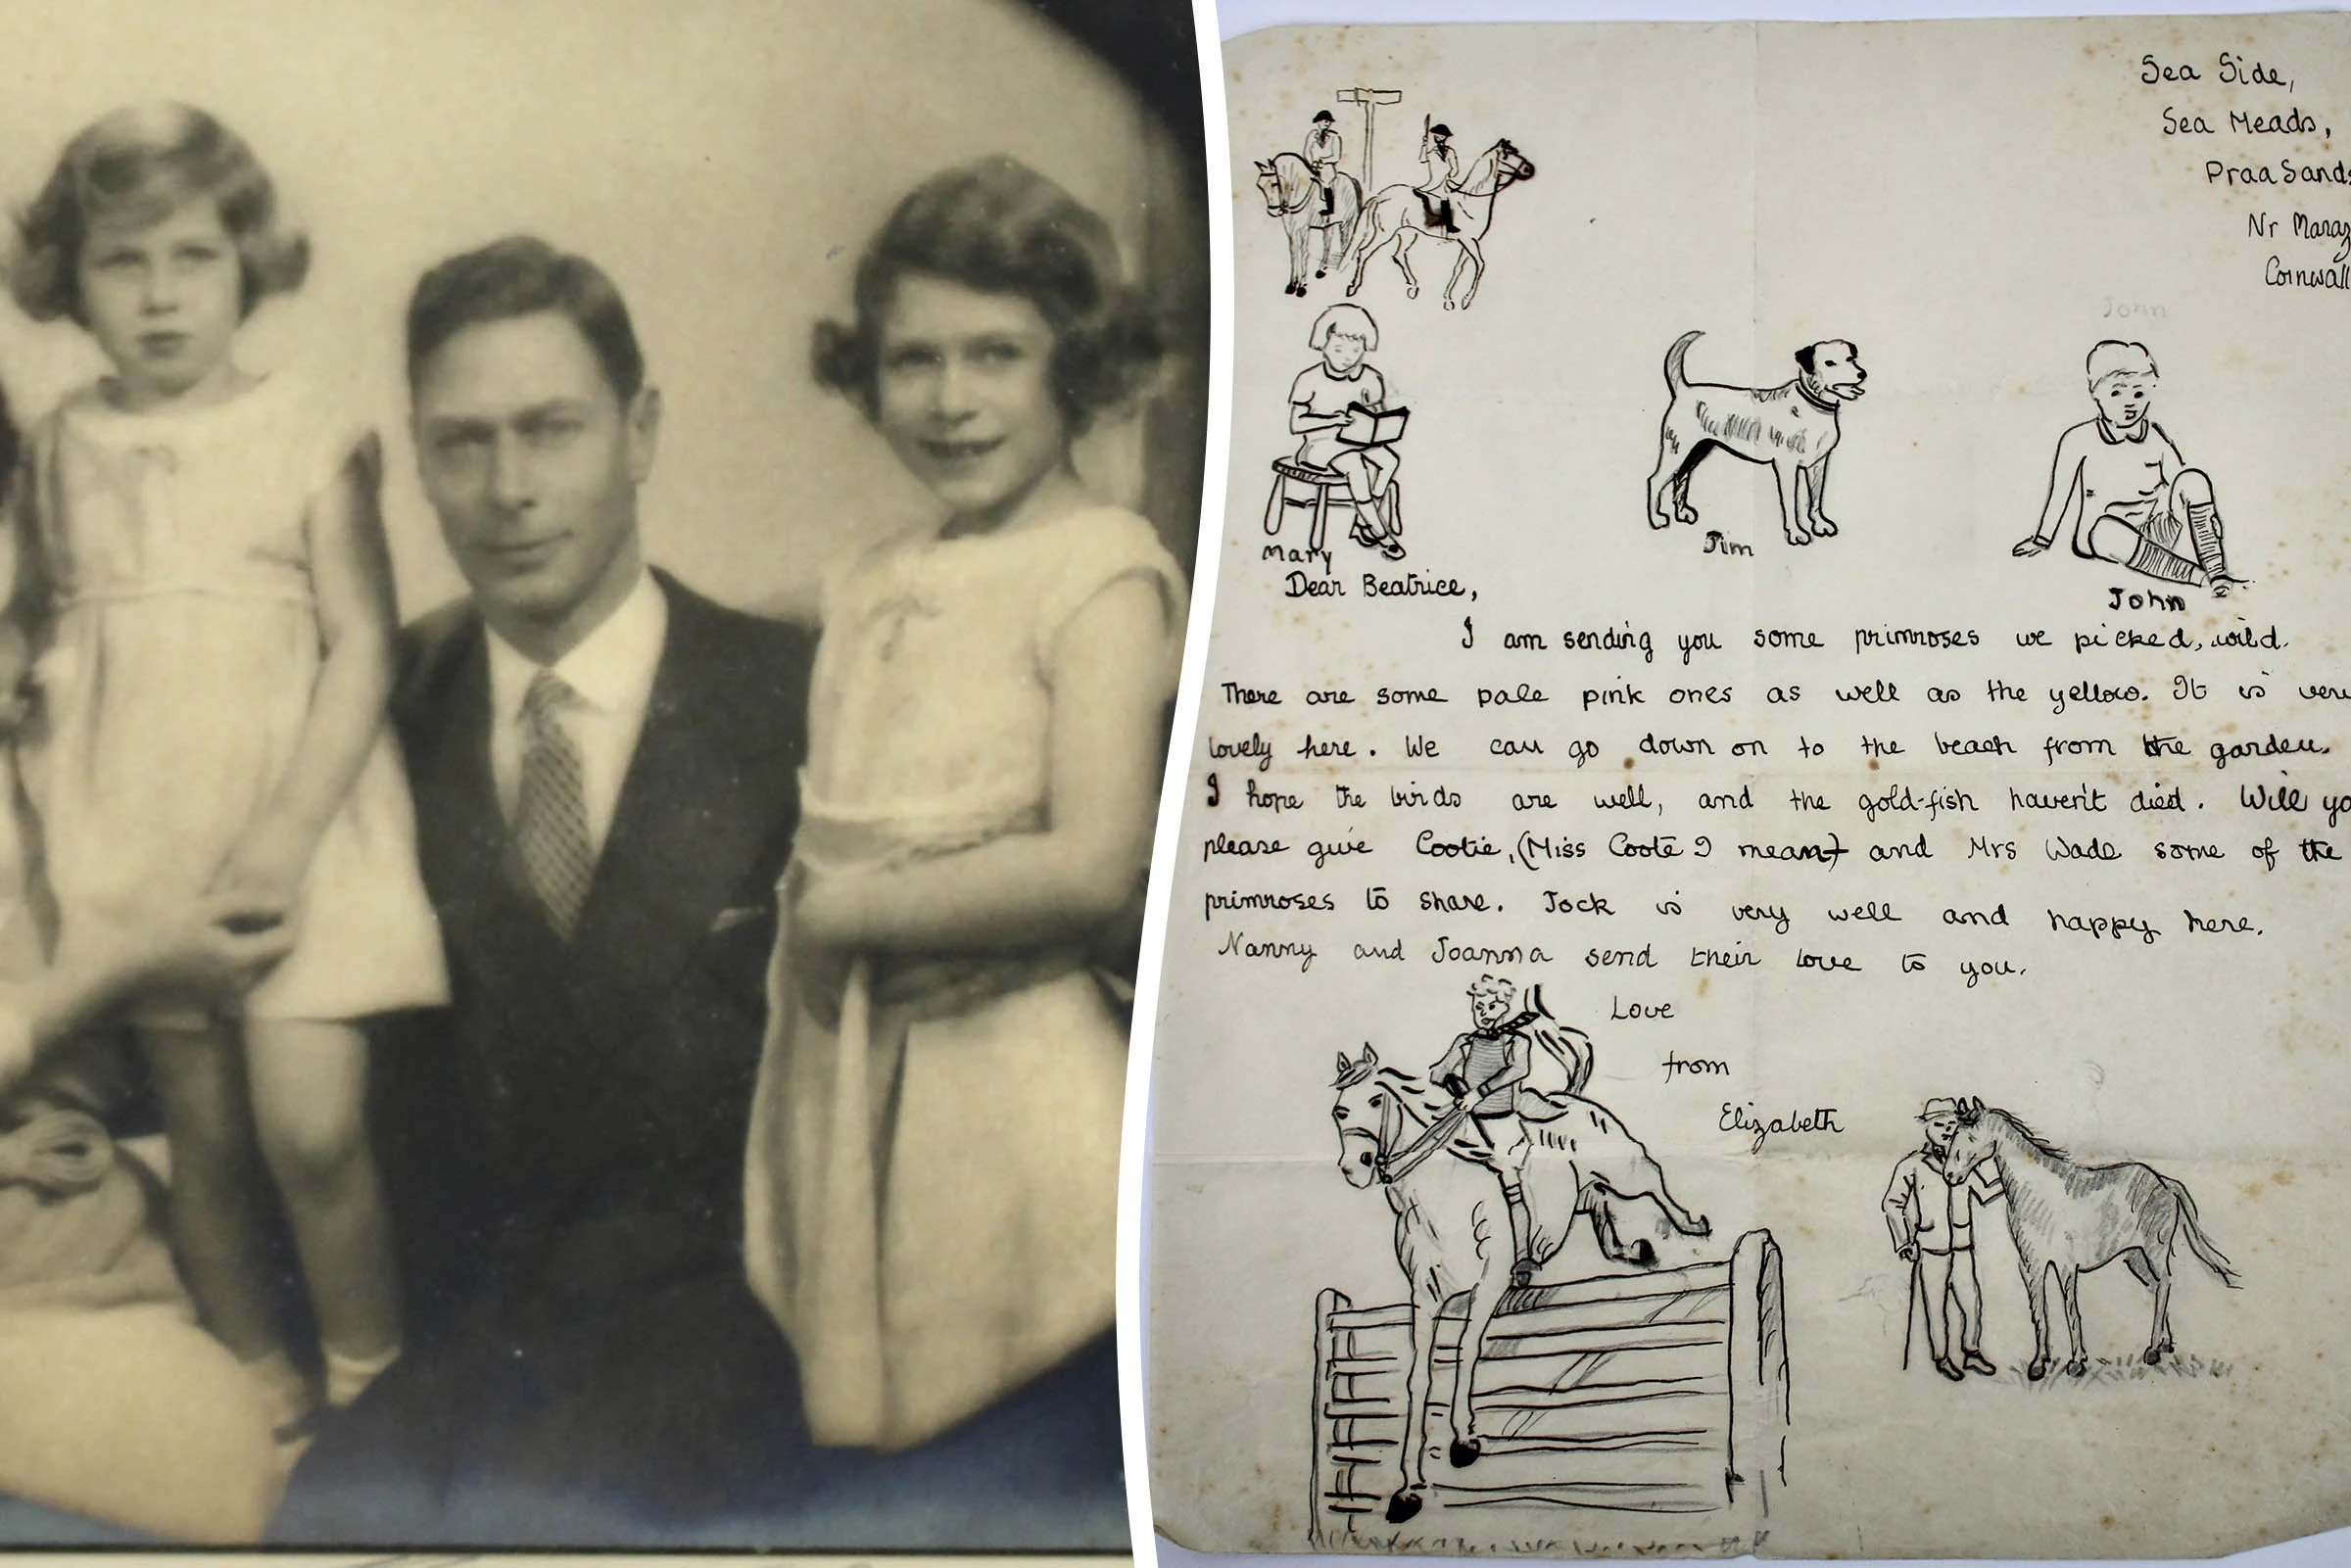 Sea Side,
Sea Meads,
Praa Sands
Nr
Cornwall
John
Mary
Jim
John
Dear Beatrice,
I am sending you some primroses we picked, wild.
There are some pale pink ones as well as the yellow. It is
lovely here. We can go down on to the beach from the garden.
I hope the birds are well, and the gold-fish haven't died. Will
please give Cootie, (Miss Coote I meant) and Mrs Wade some of the
primroses to share. Jock is very well and happy here.
Nanny and Joanna send their love to you.
Love
from
Elizabeth